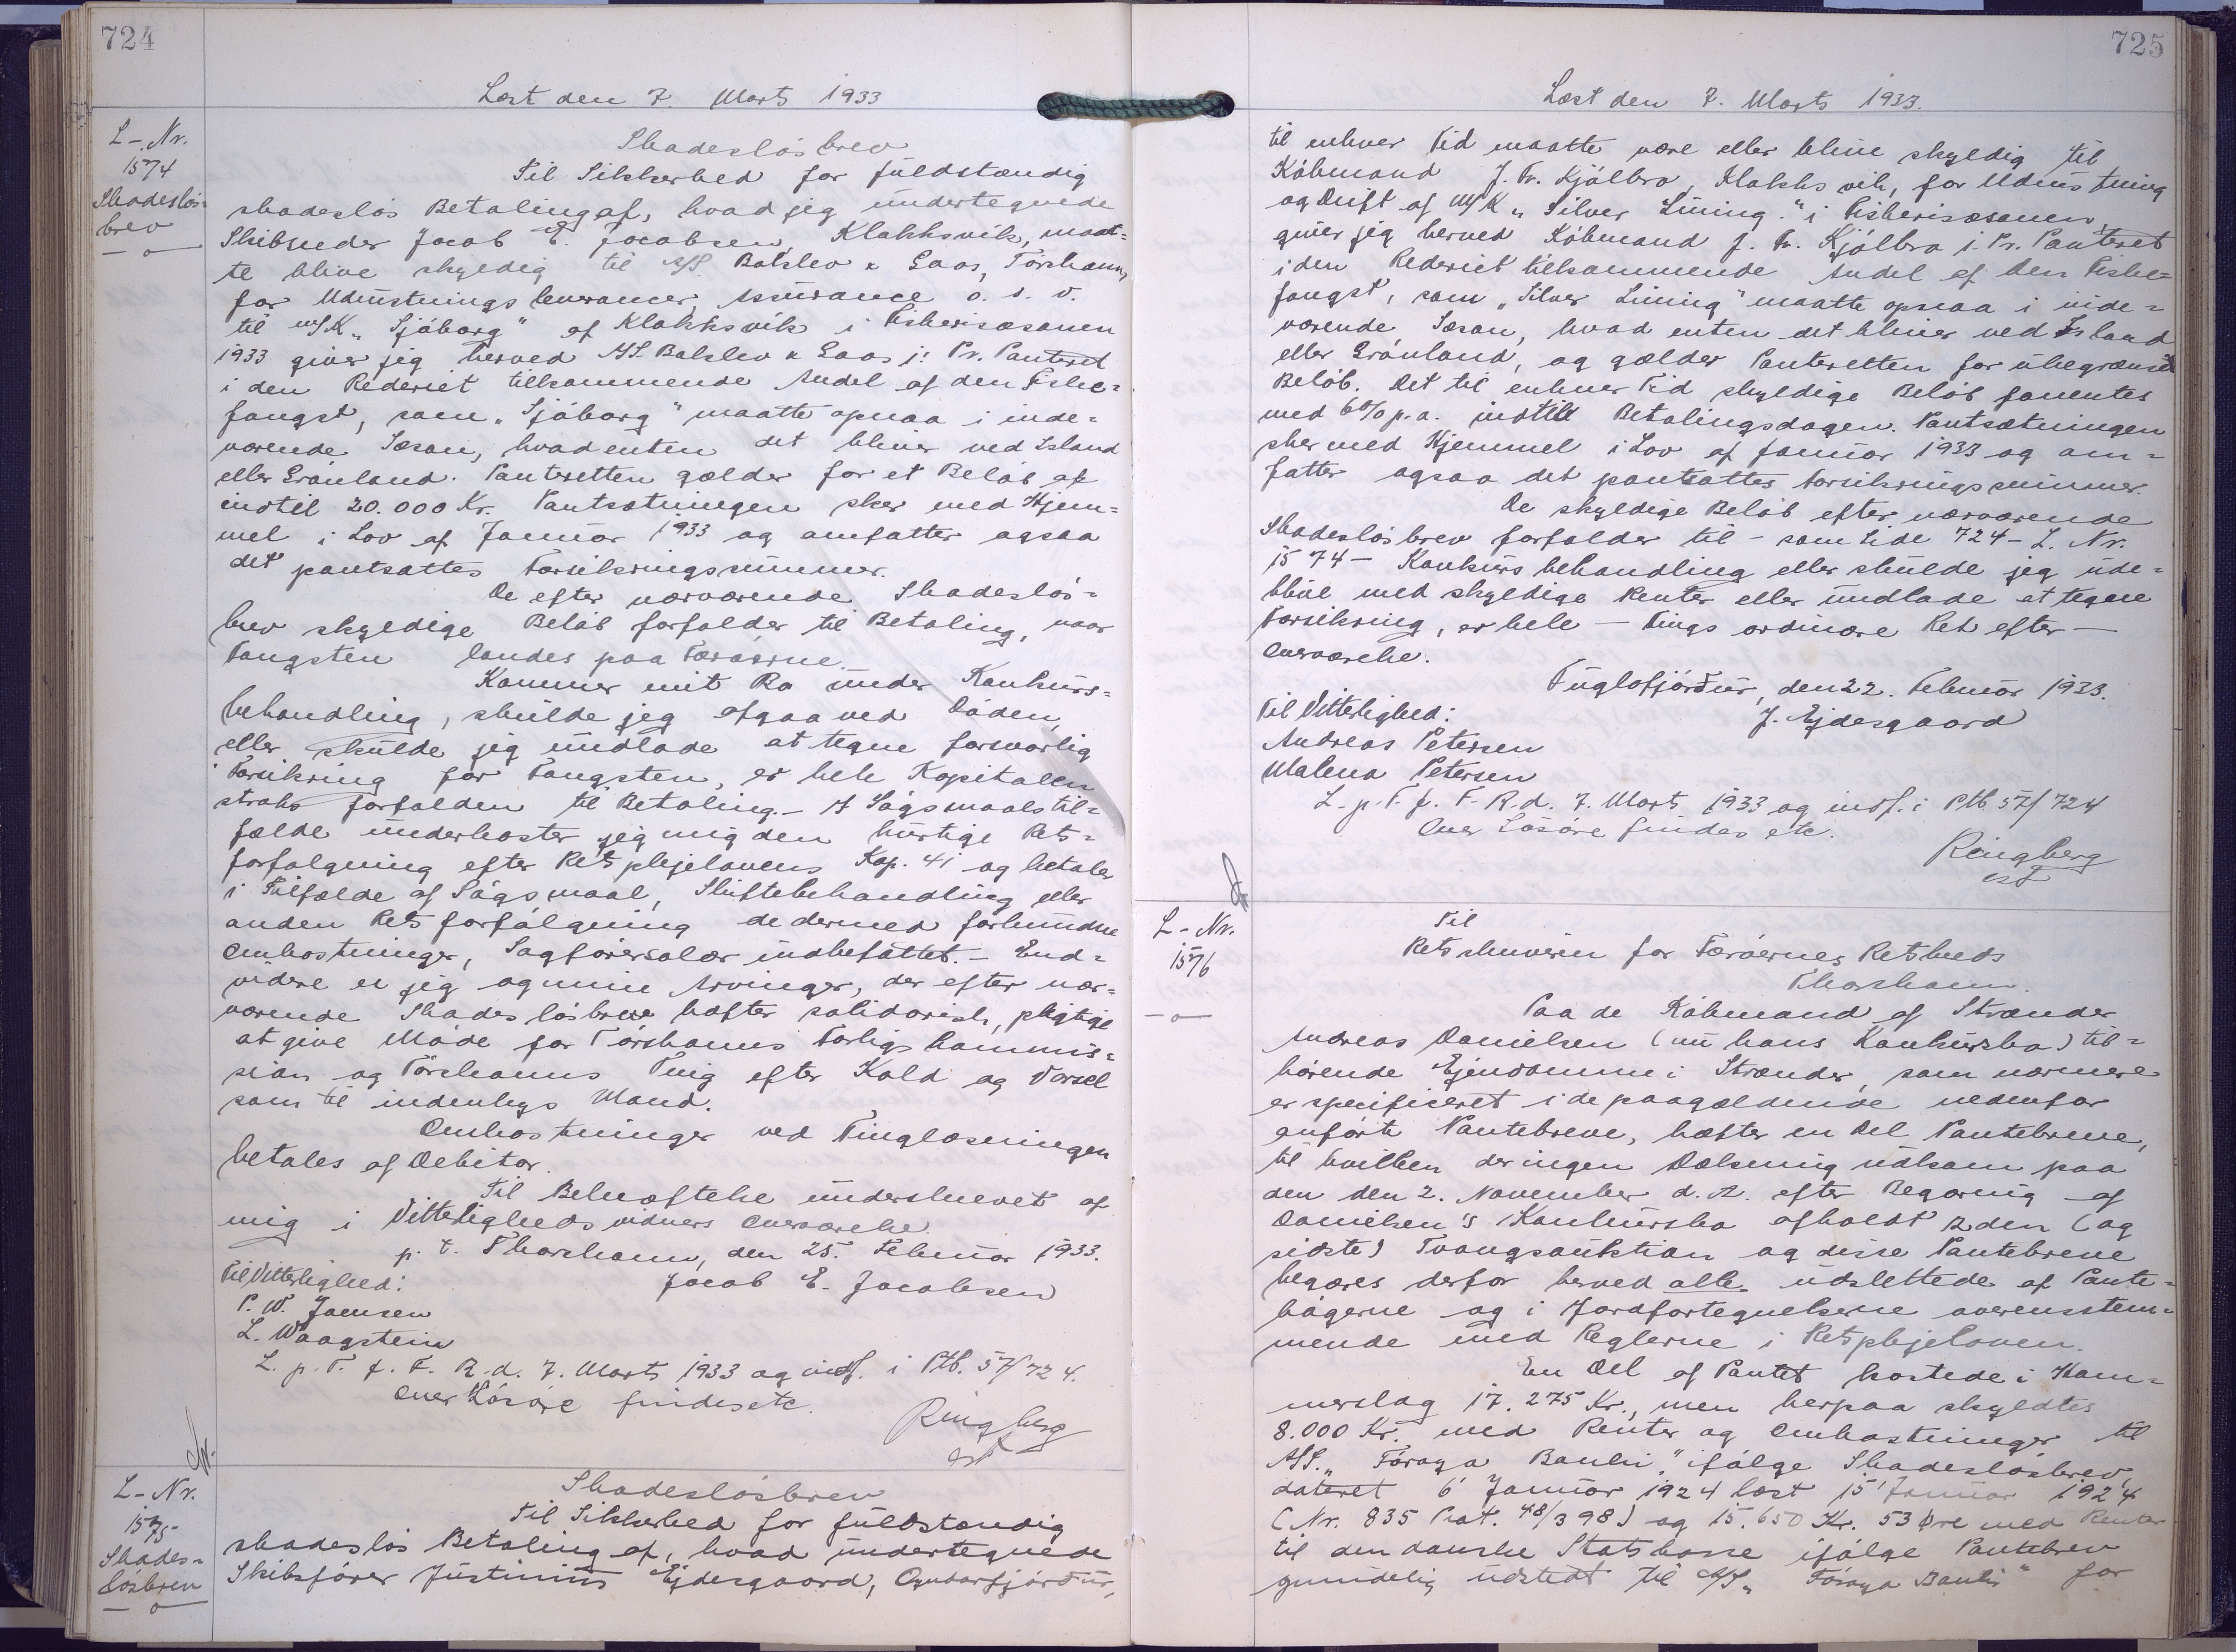 724
Læst den 7. Marts 1933
L-Nr.
1574
Skadeslös-
brev
Skadeslösbrev
Til Sikkerhed for fuldstændig
skadeslös Betaling af, hvad jeg undertegnede
Skibsreder Jacob E. Jacobsen, Klakksvik, maat=
te blive skyldig til A/S. Balslev & Laas, Torshavn,
for Udrustningsleverancer, Assurance o. s. v.
til M/K „Sjóborg" af Klakksvik i Fiskerisæsonen
1933 giver jeg herved A/S. Balslev & Laas j: Pr. Panteret
i den Rederiet tilkommende Andel af den Fiske=
fangst, som „Sjóborg" maatte opnaa i inde=
værende Sæson, hvadenten det bliver ved Island
eller Grönland. Panteretten gælder for et Belöb af
indtil 20.000 Kr. Pantsætningen sker med Hjem=
mel i Lov af Januar 1933 og omfatter ogsaa
det pantsattes Forsikringssummer.
De efter nærværende Skadeslös=
brev skyldige Belöb forfalder til Betaling, naar
Fangsten landes paa Færöerne.
Kommer mit Bo under Konkurs=
behandling, skulde jeg afgaa ved Döden,
eller skulde jeg undlade at tegne forsvarlig
Forsikring for Fangsten, er hele Kapitalen
straks forfalden til Betaling. - I Sögsmaalstil=
fælde underkaster jeg mig den hurtige Rets=
forfölgning efter Retsplejelovens Kap. 41 og betaler
i Tilfælde af Sögsmaal, Skiftebehandling eller
anden Retsforfölgning de dermed forbundne
Omkostninger, Sagförersalær indbefattet. - End=
videre er jeg og mine Arvinger, der efter nær=
værende Skadeslösbrev hæfter solidarisk, pligtige
at give Möde for Torshavns Forligskommis=
sion og Torshavns Ting efter Kald og Varsel
som til indenbys Mand.
Omkostninger ved Tinglæsningen
betales af Debitor.
Til Bekræftelse underskrevet af
mig i Vitterlighedsvidners Overværelse
p. t. Thorshavn, den 25. Februar 1933.
Til Vitterlighed:
Jacob E. Jacobsen
P. W. Joensen
L. Waagstein
L. p. T. f. F. R. d. 7. Marts 1933 og indf. i Ptb. 57/724.
Over Lösöre findes etc.
Ringberg
cst
L-Nr.
1575
Skades=
lösbrev
Skadeslösbrev
Til Sikkerhed for fuldstændig
skadeslös Betaling af, hvad undertegnede
Skibsförer Justinus Ejdesgaard, Ogndarfjördur,
725
Læst den 7. Marts 1933.
til enhver Tid maatte være eller blive skyldig til
Köbmand J. Fr. Kjölbro, Klakksvik, for Udrustning
og Drift af M/K „Silver Lining." i Fiskerisæsonen,
giver jeg herved Köbmand J. Fr. Kjölbro j. Pr. Panteret
i den Rederiet tilkommende Andel af den Fiske=
fangst, som „Silver Lining" maatte opnaa i inde=
værende Sæson, hvad enten det bliver ved Island
eller Grönland, og gælder Panteretten for ubegrænset
Belöb. Det til enhver Tid skyldige Belöb forrentes
med 6% p. a. indtil Betalingsdagen. Pantsætningen
sker med Hjemmel i Lov af Januar 1933 og om=
fatter ogsaa det pantsattes Forsikringssummer.
De skyldige Belöb efter nærværende
Skadeslösbrev forfalder til - som Side 724 - L. Nr.
1574 - Konkursbehandling eller skulde jeg ude=
blive med skyldige Renter eller undlade at tegne
Forsikring, er hele - Tings ordinære Ret efter -
Overværelse.
Fuglafjördur, den 22. Februar 1933.
Til Vitterlighed:
J. Ejdesgaard
Andreas Petersen
Malena Petersen
L. p. T. f. F. R. d. 7. Marts 1933 og indf. i Ptb. 57/724
Over Lösöre findes etc.
Ringberg
cst
L-Nr.
1576
Til
Retsskriveren for Færöernes Retskreds
Thorshavn.
Paa de Köbmand af Strænder
Andreas Danielsen (nu hans Konkursbo) til=
hörende Ejendomme i Strænder, som nærmere
er specificeret i de paagældende nedenfor
anförte Pantebreve, hæfter en Del Pantebreve,
til hvilken der ingen Dækning udkom paa
den den 2. November d. A. efter Begæring af
Danielsen's Konkursbo afholdt 2den (og
sidste) Tvangsauktion og disse Pantebreve
begæres derfor herved alle udslettede af Pante=
bögerne og i Jordfortegnelserne overensstem=
mende med Reglerne i Retsplejeloven.
En Del af Pantet kostede i Ham=
merslag 17.275 Kr., men herpaa skyldtes
8.000 Kr. med Renter og Omkostninger til
A/S. „Föroya Banki," ifölge Skadeslösbrev,
dateret 6' Januar 1924 læst 15' Januar 1924
(Nr. 835 Prot. 48/398) og 15.650 Kr. 53 Øre med Renter
til den danske Statskasse ifölge Pantebrev
oprindelig udstedt til A/S „Föroya Banki" for